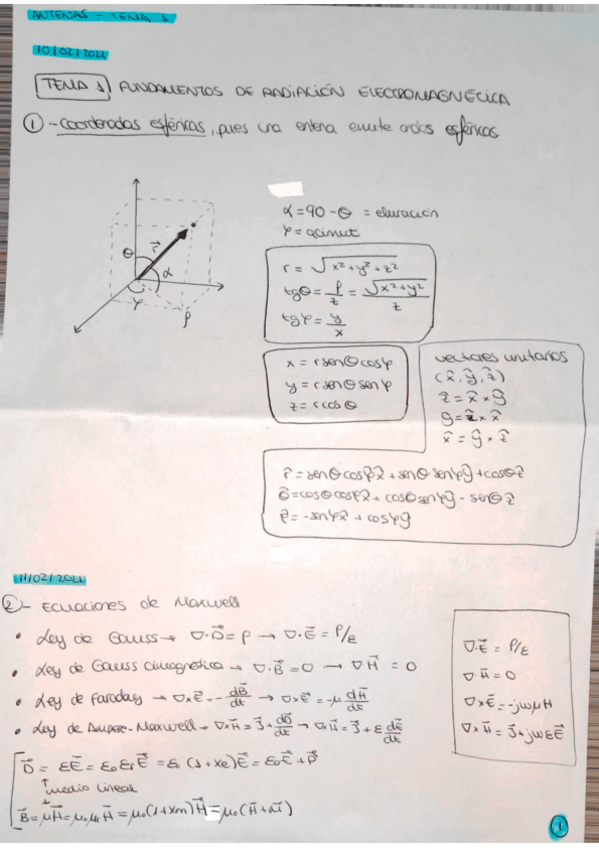 ANTENAS - TEMA 1
10/02/2021
TEMA 1 FUNDAMENTOS DE RADIACIÓN ELECTROMAGNÉTICA
① - coordenadas esféricas, pues una antena emite ondas esféricas
θ r⃗ α
φ ρ
α = 90 - θ = elevación
φ = acimut
r = √x² + y² + z²
tgθ = ρ/z = √x² + y²/z
tgφ = y/x
x = r senθ cosφ
y = r senθ senφ
z = r cosθ
vectores unitarios
(x̂, ŷ, ẑ)
ẑ = x̂ × ŷ
ŷ = ẑ × x̂
x̂ = ŷ × ẑ
r̂ = senθ cosφ x̂ + senθ senφ ŷ + cosθ ẑ
θ̂ = cosθ cosφ x̂ + cosθ senφ ŷ - senθ ẑ
φ̂ = -senφ x̂ + cosφ ŷ
11/02/2021
② - ECUACIONES de Maxwell
• Ley de Gauss → ∇·D⃗ = ρ → ∇·E⃗ = ρ/ε
• Ley de Gauss → ∇·B⃗ = 0 → ∇H⃗ = 0
• Ley de Faraday → ∇×E⃗ = - dB⃗/dt → ∇×E⃗ = -μ dH⃗/dt
• Ley de Amper-Maxwell → ∇×H⃗ = J⃗ + dD⃗/dt → ∇×H⃗ = J⃗ + ε dE⃗/dt
∇·E⃗ = ρ/ε
∇·H⃗ = 0
∇×E⃗ = -jωμH
∇×H⃗ = J⃗ + jωεE⃗
D⃗ = εE⃗ = ε₀εᵣE⃗ = ε₀(1+χe)E⃗ = ε₀E⃗ + P⃗
↑ medio lineal
↓
B⃗ = μH⃗ = μ₀μᵣH⃗ = μ₀(1+χm)H⃗ = μ₀(H⃗ + M⃗)
1